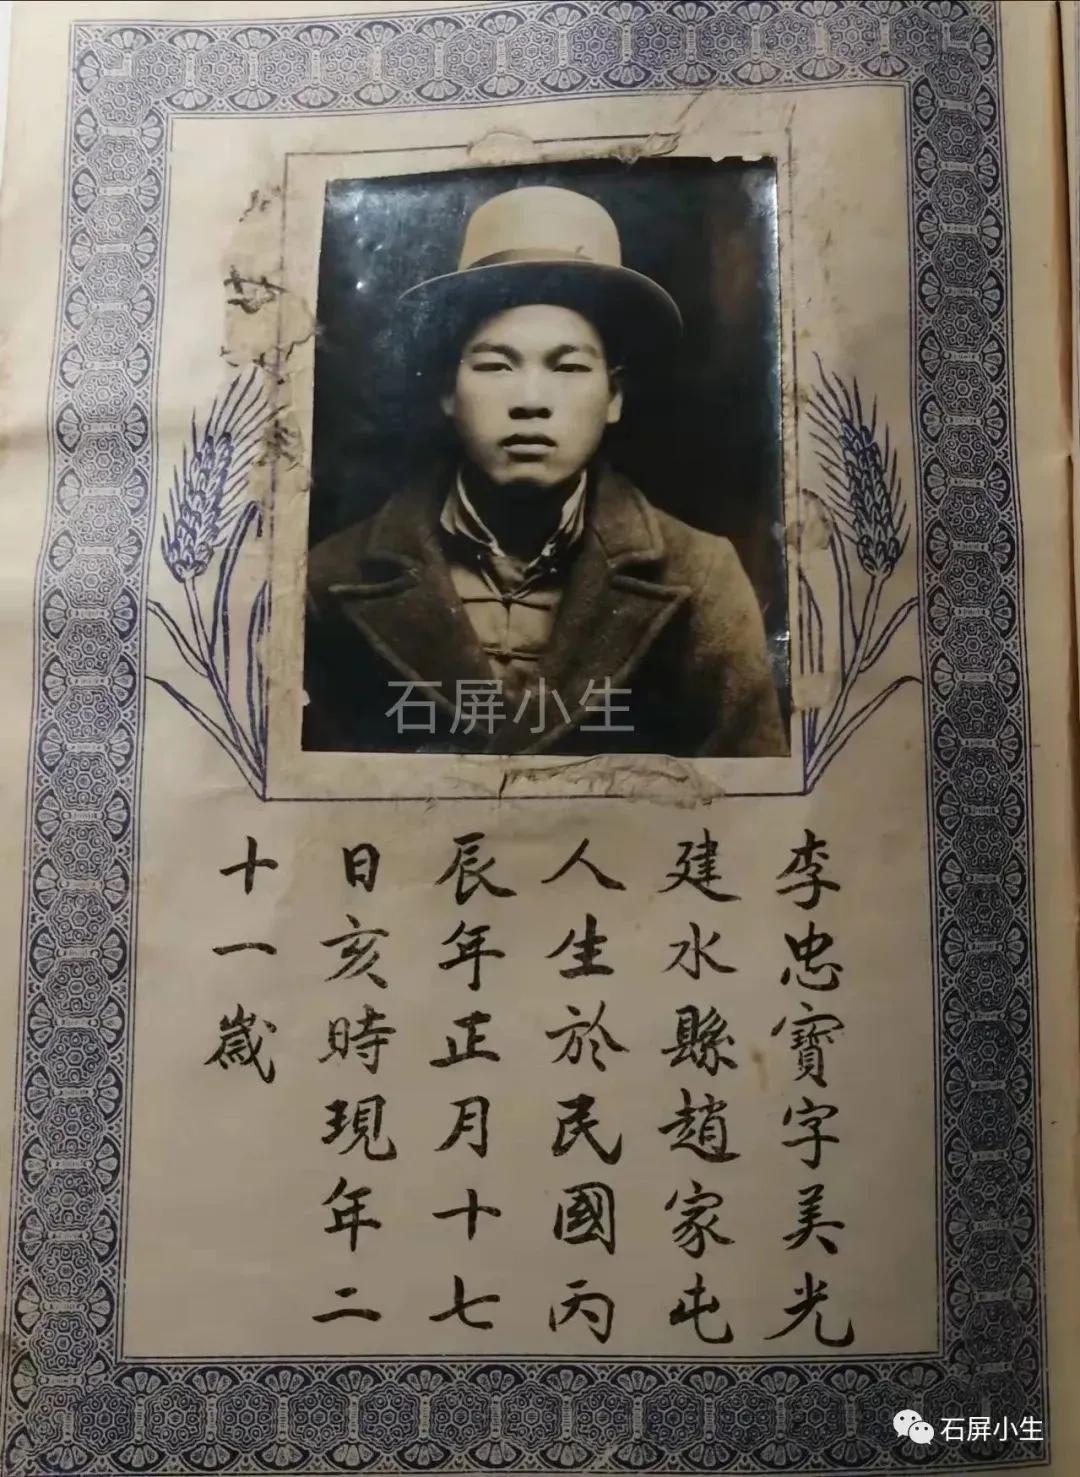 李忠寶字美光
建水縣趙家屯
人生於民國丙
辰年正月十七
日亥時現年二
十一歲
石屏小生
石屏小生